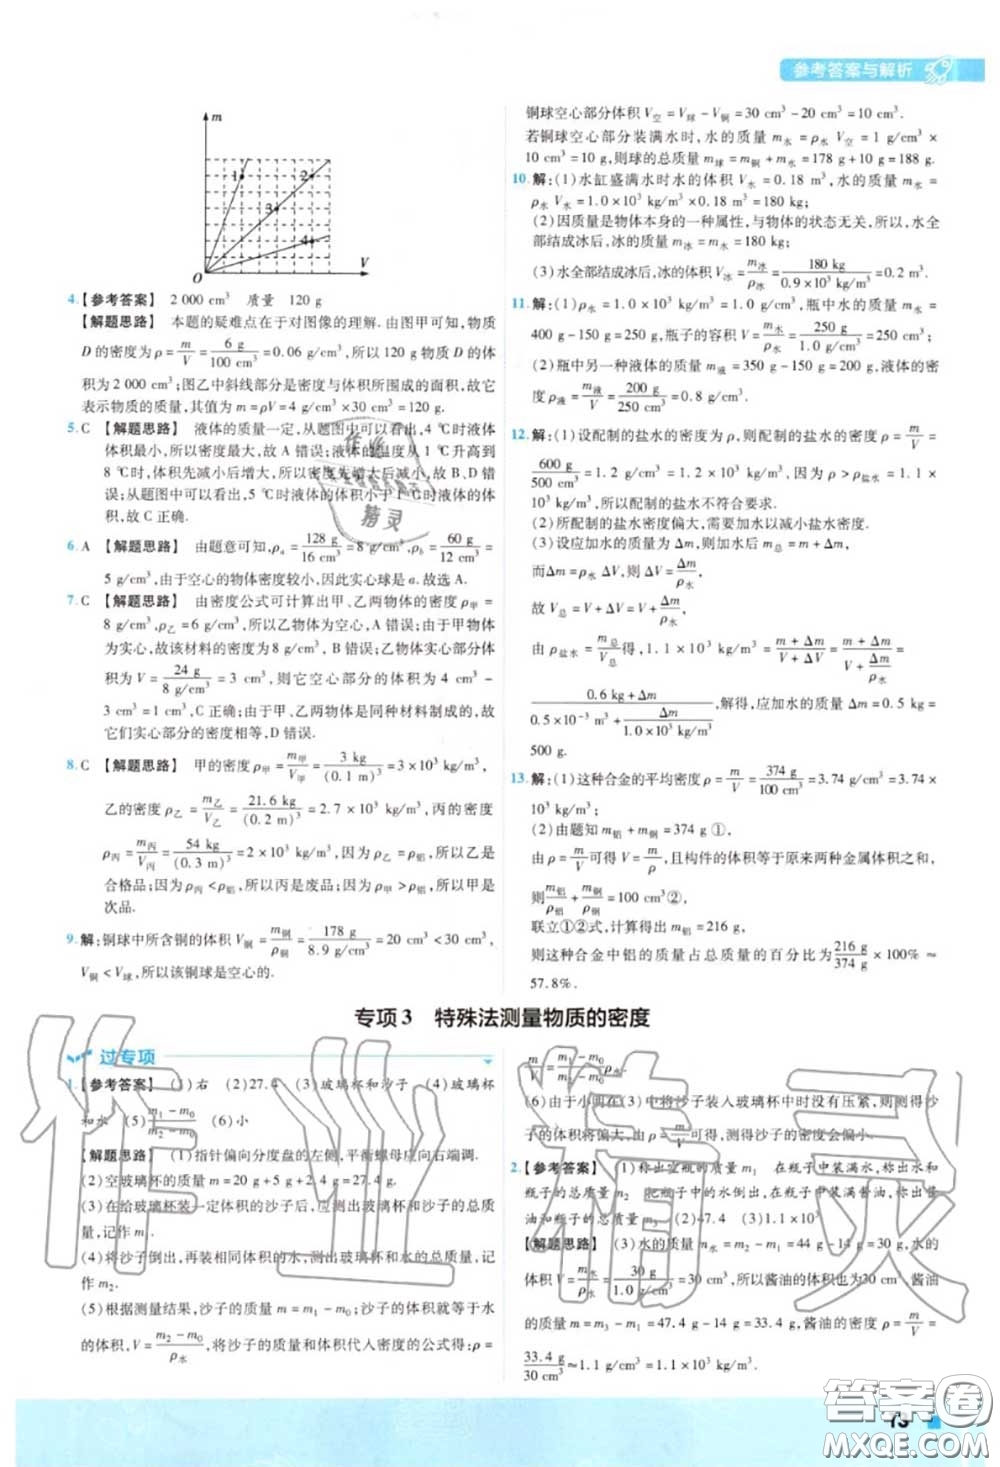 参考答案与解析
m
1
2
3
4
O
V
4.【参考答案】 2 000 cm³ 质量 120 g
【解题思路】 本题的疑难点在于对图像的理解.由图甲可知,物质
D 的密度为 ρ = m/V = 6 g/100 cm³ = 0.06 g/cm³,所以 120 g 物质 D 的体
积为 2 000 cm³;图乙中斜线部分是密度与体积所围成的面积,故它
表示物质的质量,其值为 m = ρV = 4 g/cm³ × 30 cm³ = 120 g.
5.C 【解题思路】 液体的质量一定,从题图中可以看出,4 ℃时液体
体积最小,所以密度最大,故 A 错误;液体的温度从 1 ℃升高到
8 ℃时,体积先减小后增大,所以密度先增大后减小,故 B、D 错
误;从题图中可以看出,5 ℃时液体的体积小于 1 ℃时液体的体
积,故 C 正确.
6.A 【解题思路】 由题意可知,ρa = 128 g/16 cm³ = 8 g/cm³,ρb = 60 g/12 cm³ =
5 g/cm³,由于空心的物体密度较小,因此实心球是 a.故选 A.
7.C 【解题思路】 由密度公式可计算出甲、乙两物体的密度 ρ甲 =
8 g/cm³,ρ乙 = 6 g/cm³,所以乙物体为空心,A 错误;由于甲物体
为实心,故该材料的密度为 8 g/cm³,B 错误;乙物体实心部分体
积为 V = 24 g/8 g/cm³ = 3 cm³,则它空心部分的体积为 4 cm³ -
3 cm³ = 1 cm³,C 正确;由于甲、乙两物体是同种材料制成的,故
它们实心部分的密度相等,D 错误.
8.C 【解题思路】 甲的密度 ρ甲 = m甲/V甲 = 3 kg/(0.1 m)³ = 3 × 10³ kg/m³,
乙的密度 ρ乙 = m乙/V乙 = 21.6 kg/(0.2 m)³ = 2.7 × 10³ kg/m³,丙的密度
ρ丙 = m丙/V丙 = 54 kg/(0.3 m)³ = 2 × 10³ kg/m³,因为 ρ乙 = ρ铝,所以乙是
合格品;因为 ρ丙 < ρ铝,所以丙是废品;因为 ρ甲 > ρ铝,所以甲是
次品.
9.解:铜球中所含铜的体积 V铜 = m铜/ρ铜 = 178 g/8.9 g/cm³ = 20 cm³ < 30 cm³,
V铜 < V球,所以该铜球是空心的.
铜球空心部分体积 V空 = V球 - V铜 = 30 cm³ - 20 cm³ = 10 cm³,
若铜球空心部分装满水时,水的质量 m水 = ρ水 V空 = 1 g/cm³ ×
10 cm³ = 10 g,则球的总质量 m球 = m铜 + m水 = 178 g + 10 g = 188 g.
10.解:(1)水缸盛满水时水的体积 V水 = 0.18 m³,水的质量 m水 =
ρ水 V水 = 1.0 × 10³ kg/m³ × 0.18 m³ = 180 kg;
(2)因质量是物体本身的一种属性,与物体的状态无关,所以,水全
部结成冰后,冰的质量 m冰 = m水 = 180 kg;
(3)水全部结成冰后,冰的体积 V冰 = m冰/ρ冰 = 180 kg/0.9 × 10³ kg/m³ = 0.2 m³.
11.解:(1)ρ水 = 1.0 × 10³ kg/m³ = 1.0 g/cm³,瓶中水的质量 m水 =
400 g - 150 g = 250 g,瓶子的容积 V = m水/ρ水 = 250 g/1.0 g/cm³ = 250 cm³;
(2)瓶中另一种液体的质量 m液 = 350 g - 150 g = 200 g,液体的密
度 ρ液 = m液/V = 200 g/250 cm³ = 0.8 g/cm³.
12.解:(1)设配制的盐水的密度为 ρ,则配制的盐水的密度 ρ = m/V =
600 g/500 cm³ = 1.2 g/cm³ = 1.2 × 10³ kg/m³,因为 ρ > ρ盐水 = 1.1 ×
10³ kg/m³,所以配制的盐水不符合要求.
(2)所配制的盐水密度偏大,需要加水以减小盐水密度.
(3)设应加水的质量为 Δm,则加水后 m总 = m + Δm,
而Δm = ρ水 ΔV,则 ΔV = Δm/ρ水,
故 V总 = V + ΔV = V + Δm/ρ水,
由 ρ盐水 = m总/V总 得,1.1 × 10³ kg/m³ = m + Δm/V + ΔV = m + Δm/V + Δm/ρ水 =
0.6 kg + Δm/0.5 × 10⁻³ m³ + Δm/1.0 × 10³ kg/m³,解得,应加水的质量 Δm = 0.5 kg =
500 g.
13.解:(1)这种合金的平均密度 ρ = m/V = 374 g/100 cm³ = 3.74 g/cm³ = 3.74 ×
10³ kg/m³;
(2)由题知 m铝 + m钢 = 374 g ①,
由 ρ = m/V 可得 V = m/ρ,且构件的体积等于原来两种金属体积之和,
则 m铝/ρ铝 + m钢/ρ钢 = 100 cm³②,
联立①②式,计算得出 m铝 = 216 g,
则这种合金中铝的质量占总质量的百分比为 216 g/374 g × 100% ≈
57.8%.
专项 3 特殊法测量物质的密度
过专项
1.【参考答案】 (1)右 (2)27.4 (3)玻璃杯和沙子 (4)玻璃杯
和水 (5)m₁ - m₀/m₂ - m₀ (6)小
【解题思路】 (1)指针偏向分度盘的左侧,平衡螺母应向右端调.
(2)空玻璃杯的质量 m = 20 g + 5 g + 2.4 g = 27.4 g.
(3)在给玻璃杯装一定体积的沙子后,应测出玻璃杯和沙子的总质
量,记作 m₁.
(4)将沙子倒出,再装相同体积的水,测出玻璃杯和水的总质量,记
作 m₂.
(5)根据测量结果,沙子的质量 m = m₁ - m₀;沙子的体积就等于水
的体积,V = m₂ - m₀/ρ水,将沙子的质量和体积代入密度的公式得:ρ =
m/V = m₁ - m₀/m₂ - m₀ ρ水.
(6)由于小明在(3)中将沙子装入玻璃杯中时没有压紧,则测得沙
子的体积将偏大,由 ρ = m/V 可得,测得沙子的密度会偏小.
2.【参考答案】 (1)称出空瓶的质量 m₁ 在瓶子中装满水,称出水和
瓶子的总质量 m₂ 把瓶子中的水倒出,在瓶子中装满酱油,称出酱
油和瓶子的总质量 m₃ (2)47.4 (3)1.1 × 10³
【解题思路】 (3)水的质量 m水 = m₂ - m₁ = 44 g - 14 g = 30 g,水的
体积 V = m水/ρ水 = 30 g/1.0 g/cm³ = 30 cm³,所以酱油的体积也为30 cm³,酱油
的质量为 m = m₃ - m₁ = 47.4 g - 14 g = 33.4 g,酱油的密度 ρ = m/V =
33.4 g/30 cm³ ≈ 1.1 g/cm³ = 1.1 × 10³ kg/m³.
作业精灵
作业
精灵
73
答案圈
MXQE.COM